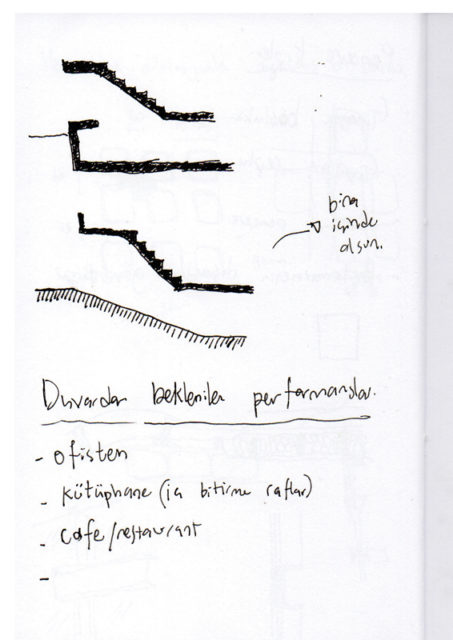 bina
içinde
olsun.
Duvardan beklenilen performanslar.
- ofisten
- kütüphane (ia bitirme raflar)
- cafe/restaurant
-